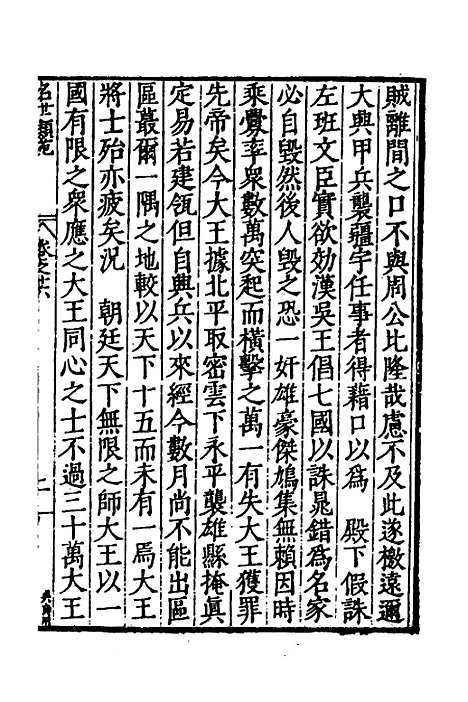 賊離間之口不與周公比隆哉慮不及此遂檄遠邇
大興甲兵襲疆宇任事者得藉口以為　殿下假誅
左班文臣實欲効漢吳王倡七國以誅晁錯為名家
必自毀然後人毀之恐一奸雄豪傑鳩集無賴因時
乘釁率衆數萬突起而橫擊之萬一有失大王獲罪
先帝矣今大王據北平取密雲下永平襲雄縣掩眞
定易若建瓴但自興兵以來經今數月尚不能出區
區蕞爾一隅之地較以天下十五而未有一焉大王
將士殆亦疲矣況　朝廷天下無限之師大王以一
國有限之衆應之大王同心之士不過三十萬大王
名世類苑
卷之